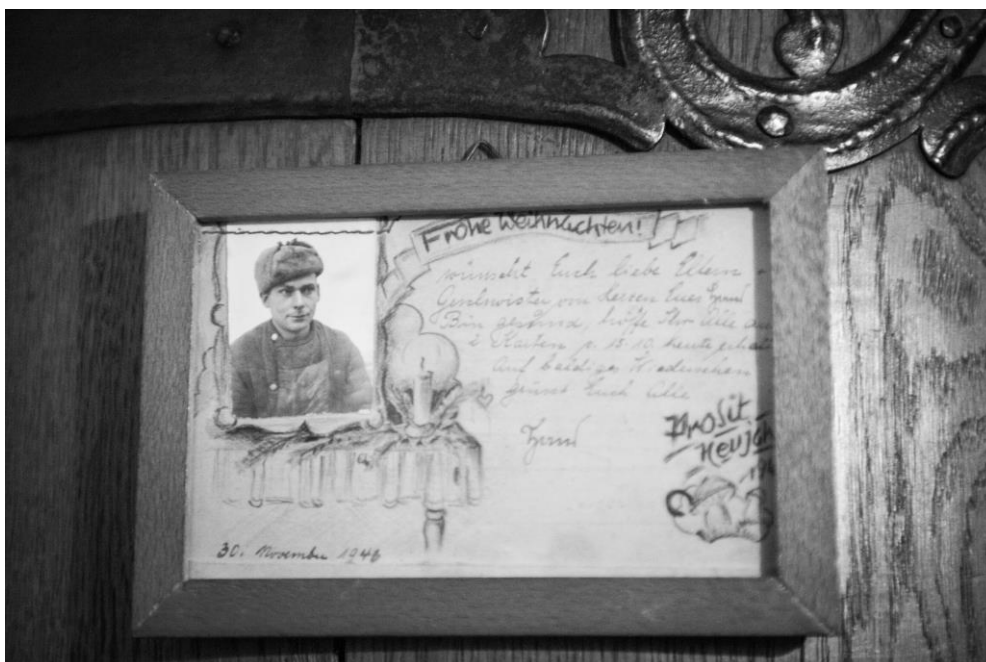 Frohe Weihnachten!
wünscht Euch liebe Eltern
Geschwister von Herzen Euer
Bin gesund, hoffe Ihr Alle
2 Karten v. 15.10. heute
Auf baldiges Wiedersehen
grüsst Euch Alle
Prosit
Neujah
30. November 1946